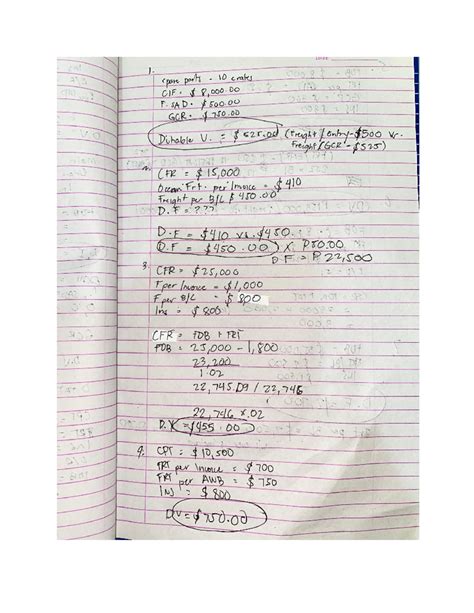 1.
spare parts - 10 crates
CIF - $ 8,000.00
F. SAD - $500.00
GCR - $ 750.00
Dutiable V. = $ 525.00 (Freight / Entry - $500 vs.
Freight / GCR - $525)
CFR = $ 15,000
Ocean Frt. per Invoice = $ 410
Freight per B/L $ 450.00
D.F = ???
D.F = $410 vs. $450
D.F = $450.00 X P50.00
D.F = P 22,500
3.
CFR = $ 25,000
F per Invoice = $1,000
F per B/L = $ 800
Ins = $ 800
CFR = FOB + FRT
FOB = 25,000 - 1,800
23,200
1.02
22,745.09 / 22,746
22,746 x .02
= $455.00
4. CPT = $ 10,500
FRT per Invoice = $ 700
FRT per AWB = $ 750
INS = $ 800
DV = $750.00